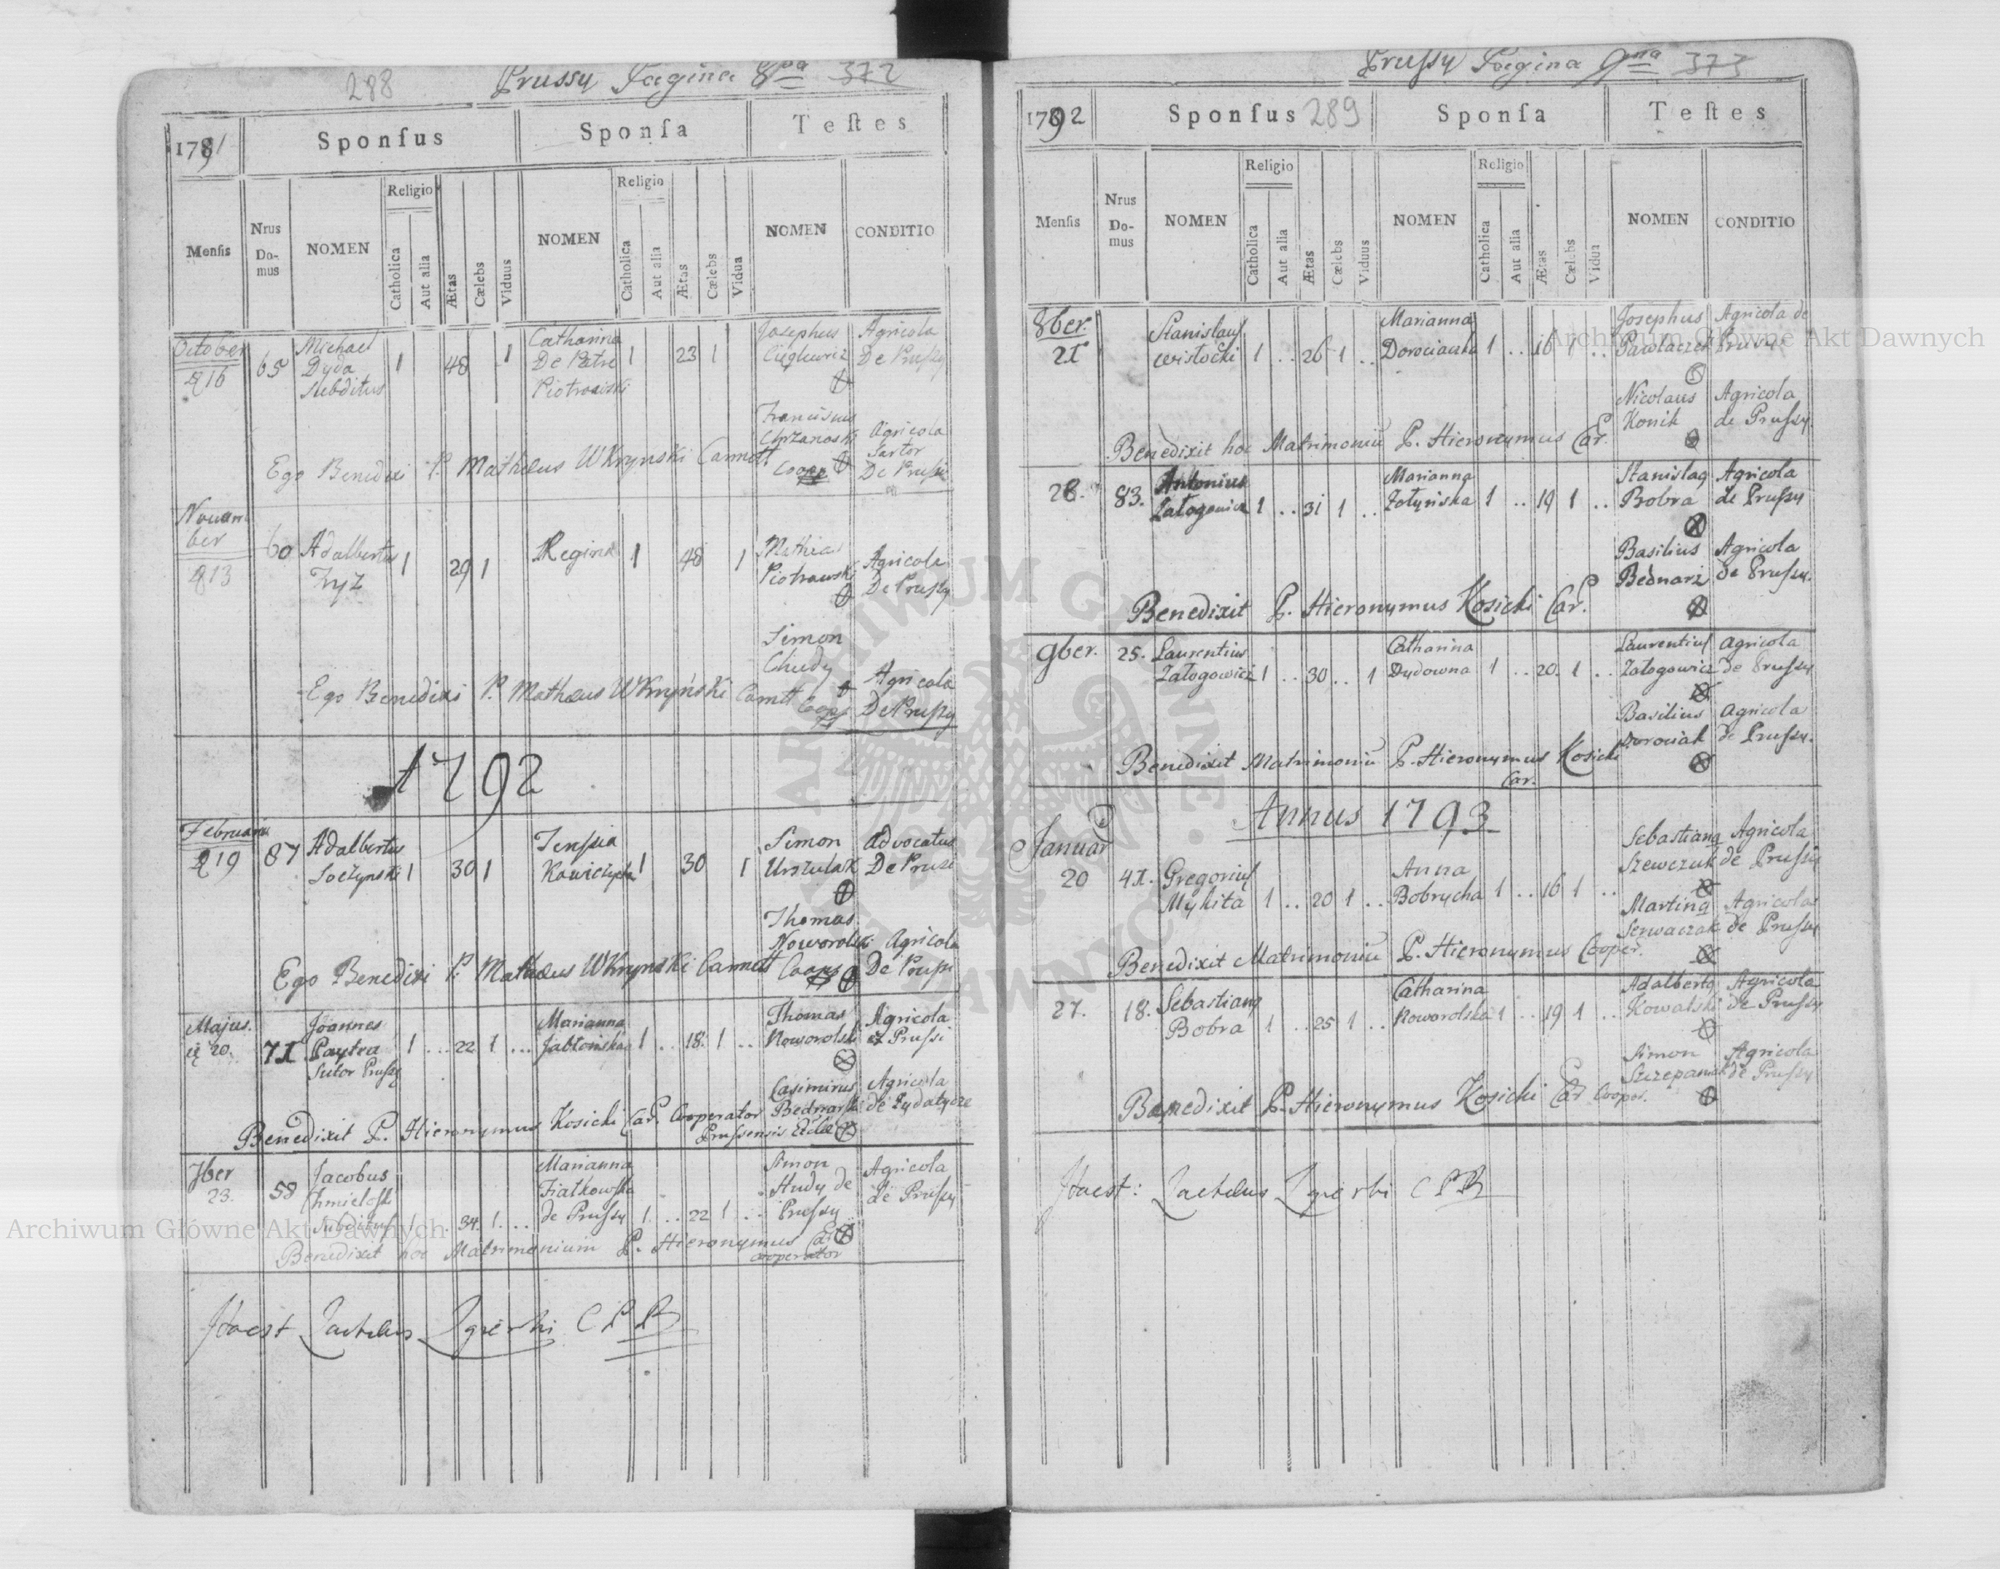 288 Prussy Pagina 8va 372
1791 Sponsus Sponsa Testes
Mensis Nrus Domus NOMEN Religio Catholica Aut alia Ætas Cœlebs Viduus NOMEN Religio Catholica Aut alia Ætas Cœlebs Vidua NOMEN CONDITIO
October 16 65 Michael 1 48 1 Catharina 1 23 1 Josephus Agricola
Dyda De Patre De Prussy
Subditus Piotrowski
Franciscus Agricola
Chrzanoski Sartor
De Prussi
Ego Benedixi P. Mathæus WKrynski Carmelt Coops
Novem
ber
13 60 Adalbertus 1 29 1 Regina 1 48 1 Mathias Agricola
Piotrowski De Prussy
Simon
Chudy Agricola
De Prussy
Ego Benedixi P. Mathæus WKryński Carmelt Coops
1792
Februarii 19 87 Adalbertus 1 30 1 1 30 1 Simon Advocatus
Urszulak De Prussi
Thomas
Noworolski Agricola
De Prussi
Ego Benedixi P. Mathæus WKrynski Carmelt Coops
Majus. 20. 71 Joannes 1 .. 22 1 ... Marianna 1 .. 18. 1 .. Thomas Agricola
Paytra Jabłońska Noworolski Prussi
Sutor Prussy
Casimirus Agricola
Bednarski de Zydatycze
Benedixit P. Hieronymus Kosicki Car. Cooperator
Prussensis
7ber
23. 58 Jacobus Marianna Simon Agricola
Fiałkowska Hudy de de Prussy
Subditus 1 .. 34. 1. .. de Prussy 1. .. 22 1 .. Prussy
Benedixit hoc Matrimonium P. Hieronymus Car
cooperator
C P P
Prussy Pagina 9na 373
1792 Sponsus 289 Sponsa Testes
Mensis Nrus Domus NOMEN Religio Catholica Aut alia Ætas Cœlebs Viduus NOMEN Religio Catholica Aut alia Ætas Cœlebs Vidua NOMEN CONDITIO
8ber.
21 Stanislaus Marianna Josephus Agricola de
Wistocki 1 .. 26 1 .. Dorociawna 1 .. 16 1 .. Pawlaczek Prussy
Nicolaus Agricola
Konik de Prussy.
Benedixit hoc Matrimoniu P. Hieronymus Car.
28. 83. Antonius Marianna Stanislaq Agricola
Załogowicz 1 .. 31 1 .. Zołyńska 1 .. 19 1 .. Bobra de Prussy
Basilius Agricola
Bednarz de Prussy.
Benedixit P. Hieronymus Kosicki Car.
9ber. 25. Laurentius Catharina Laurentius Agricola
Załogowicz 1 .. 30 .. 1 Dydowna 1 .. 20. 1 .. Załogowicz de Prussy
Basilius Agricola
Dorociak de Prussy.
Benedixit Matrimoniu P. Hieronymus Kosicki
Car.
Annus 1793
Januar
20 41. Gregorius Anna Sebastianq Agricola
Mykita 1 .. 20 1 .. Bobrycha 1 .. 16 1 .. Szewczuk de Prussy
Martinq Agricola
Szewczak de Prussy
Benedixit Matrimoniu P. Hieronymus Cooper.
27. 18. Sebastianq Catharina Adalbertq Agricola
Bobra 1 .. 25 1 .. Noworolska 1 .. 19 1 .. Kowalski de Prussy
Simon Agricola
Szczepaniak de Prussy
Benedixit P. Hieronymus Kosicki Car Cooper.
C P P
Archiwum Główne Akt Dawnych
Archiwum Główne Akt Dawnych
ARCHIWUM GŁÓWNE AKT DAWNYCH